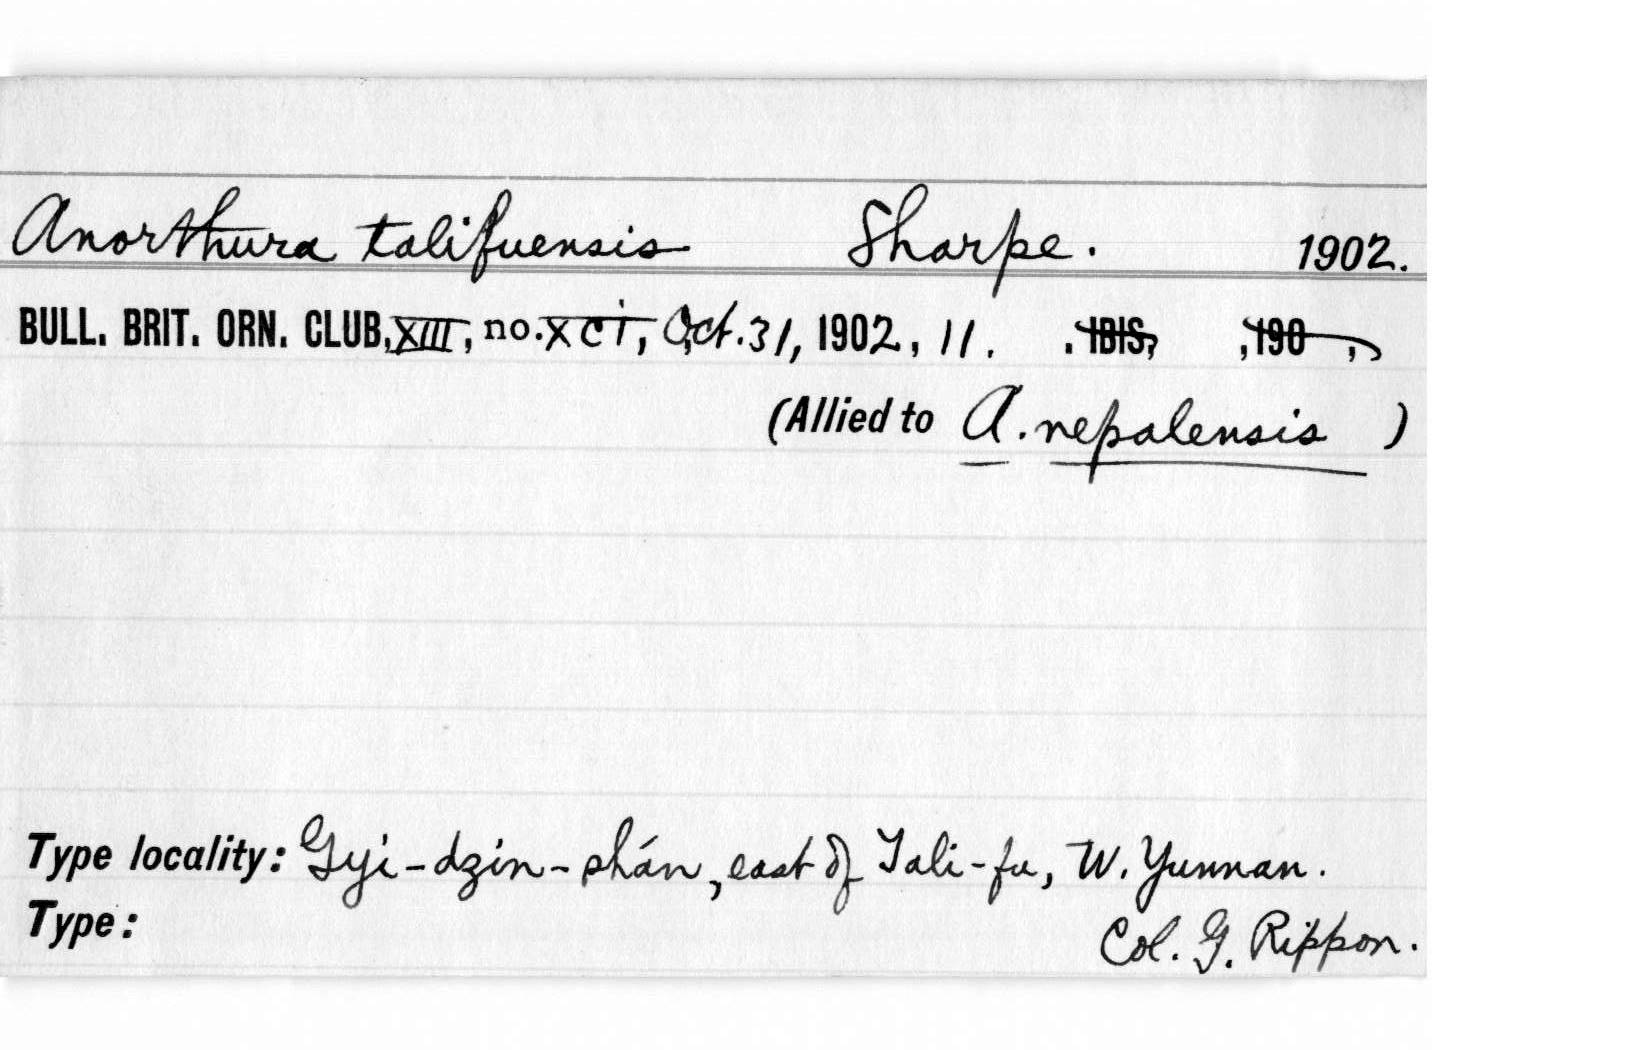 Anorthura talifuensis Sharpe. 1902.
BULL. BRIT. ORN. CLUB, XIII, no. XCI, Oct. 31, 1902, 11. . IBIS, ,190 ,
(Allied to A. nepalensis )
Type locality: Gyi-dzin-shán, east of Tali-fu, W. Yunnan.
Type: Col. G. Rippon.